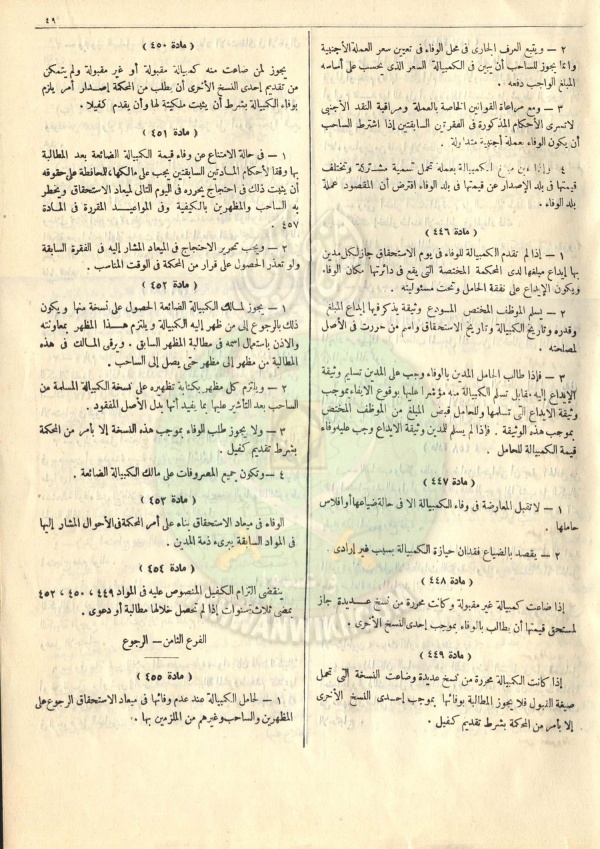 ٤٩
٢ – ويتبع العرف الجارى فى محل الوفاء فى تعيين سعر العملة الأجنبية
وانما يجوز للساحب أن يبين فى الكمبيالة السعر الذى يحسب على أساسه
المبلغ الواجب دفعه .
٣ – ومع مراعاة القوانين الخاصة بالعملة ومراقبة النقد الأجنبى
لاتسرى الأحكام المذكورة فى الفقرتين السابقتين إذا اشترط الساحب
أن يكون الوفاء بعملة أجنبية متداولة .
٤ – وإذا عين مبلغ الكمبيالة بعملة تحمل تسمية مشتركة وتختلف
قيمتها فى بلد الإصدار عن قيمتها فى بلد الوفاء افترض أن المقصود عملة
بلد الوفاء .
( مادة ٤٤٦ )
١ – إذا لم تقدم الكمبيالة للوفاء فى يوم الاستحقاق جاز لكل مدين
بها إيداع مبلغها لدى المحكمة المختصة التى يقع فى دائرتها مكان الوفاء
ويكون الإيداع على نفقة الحامل وتحت مسئوليته .
٢ – يسلم الموظف المختص المودع وثيقة يذكر فيها ايداع المبلغ
وقدره وتاريخ الكمبيالة وتاريخ الاستحقاق واسم من حررت فى الأصل
لمصلحته .
٣ – فإذا طالب الحامل المدين بالوفاء وجب على المدين تسليم وثيقة
الإيداع إليه مقابل تسلم الكمبيالة منه مؤشرا عليها بوقوع الايفاء بموجب
وثيقة الايداع التى تسلمها وللحامل قبض المبلغ من الموظف المختص
بموجب هذه الوثيقة . فإذا لم يسلم المدين وثيقة الايداع وجب عليه وفاء
قيمة الكمبيالة للحامل .
( مادة ٤٤٧ )
١ – لا تقبل المعارضة فى وفاء الكمبيالة الا فى حالة ضياعها أو افلاس
حاملها .
٢ – يقصد بالضياع فقدان حيازة الكمبيالة بسبب غير إرادى .
( مادة ٤٤٨ )
إذا ضاعت كمبيالة غير مقبولة وكانت محررة من نسخ عديدة جاز
لمستحق قيمتها أن يطالب بالوفاء بموجب إحدى النسخ الأخرى .
( مادة ٤٤٩ )
إذا كانت الكمبيالة محررة من نسخ عديدة وضاعت النسخة التى تحمل
صيغة القبول فلا يجوز المطالبة بوفائها بموجب إحدى النسخ الأخرى
إلا بأمر من المحكة بشرط تقديم كفيل .
( مادة ٤٥٠ )
يجوز لمن ضاعت منه كمبيالة مقبولة أو غير مقبولة ولم يتمكن
من تقديم إحدى النسخ الأخرى أن يطلب من المحكمة إصدار أمر يلزم
بوفاء الكمبيالة بشرط أن يثبت ملكيته لها وأن يقدم كفيلا .
( مادة ٤٥١ )
١ – فى حالة الامتناع عن وفاء قيمة الكمبيالة الضائعة بعد المطالبة
بها وفقا لأحكام المادتين السابقتين يجب على مالكها للمحافظة على حقوقه
أن يثبت ذلك فى احتجاج يحرره فى اليوم التالى لميعاد الاستحقاق ويخطر
به الساحب والمظهرين بالكيفية وفى المواعيد المقررة فى المادة
٤٥٧ .
٢ – ويجب تحرير الاحتجاج فى الميعاد المشار إليه فى الفقرة السابقة
ولو تعذر الحصول على قرار من المحكمة فى الوقت المناسب .
( مادة ٤٥٢ )
١ – يجوز لمالك الكمبيالة الضائعة الحصول على نسخة منها ويكون
ذلك بالرجوع إلى من ظهر إليه الكمبيالة ويلتزم هذا المظهر بمعاونته
والاذن باستعمال اسمه فى مطالبة المظهر السابق . ويرقى المالك فى هذه
المطالبة من مظهر إلى مظهر حتى يصل إلى الساحب .
٢ – ويلتزم كل مظهر بكتابة تظهيره على نسخة الكمبيالة المسلمة من
الساحب بعد التأشير عليها بما يفيد أنها بدل الأصل المفقود .
٣ – ولا يجوز طلب الوفاء بموجب هذه النسخة إلا بأمر من المحكمة
بشرط تقديم كفيل .
٤ – وتكون جميع المصروفات على مالك الكمبيالة الضائعة .
( مادة ٤٥٣ )
الوفاء فى ميعاد الاستحقاق بناء على أمر المحكمة فى الأحوال المشار إليها
فى المواد السابقة يبرىء ذمة المدين .
( مادة ٤٥٤ )
ينقضى التزام الكفيل المنصوص عليه فى المواد ٤٤٩ ، ٤٥٠ ، ٤٥٢
بمضى ثلاث سنوات إذا لم تحصل خلالها مطالبة أو دعوى .
الفرع الثامن – الرجوع
( مادة ٤٥٥ )
١ – لحامل الكمبيالة عند عدم وفائها فى ميعاد الاستحقاق الرجوع على
المظهرين والساحب وغيرهم من الملزمين بها .